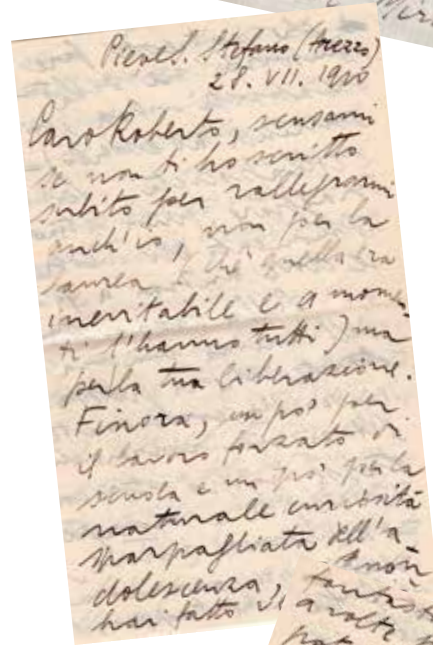 Pieve S. Stefano (Arezzo)
28. VII. 1920
Caro Roberto, scusami
se non ti ho scritto
subito per rallegrarmi
anch'io, non per la
laurea (chè quella era
inevitabile e a momen
ti l'hanno tutti) ma
per la tua liberazione.
Finora, un po' per
il lavoro forzato di
scuola e un po' per la
naturale curiosità
sparpagliata dell'a
dolescenza,
hai fatto
a volte